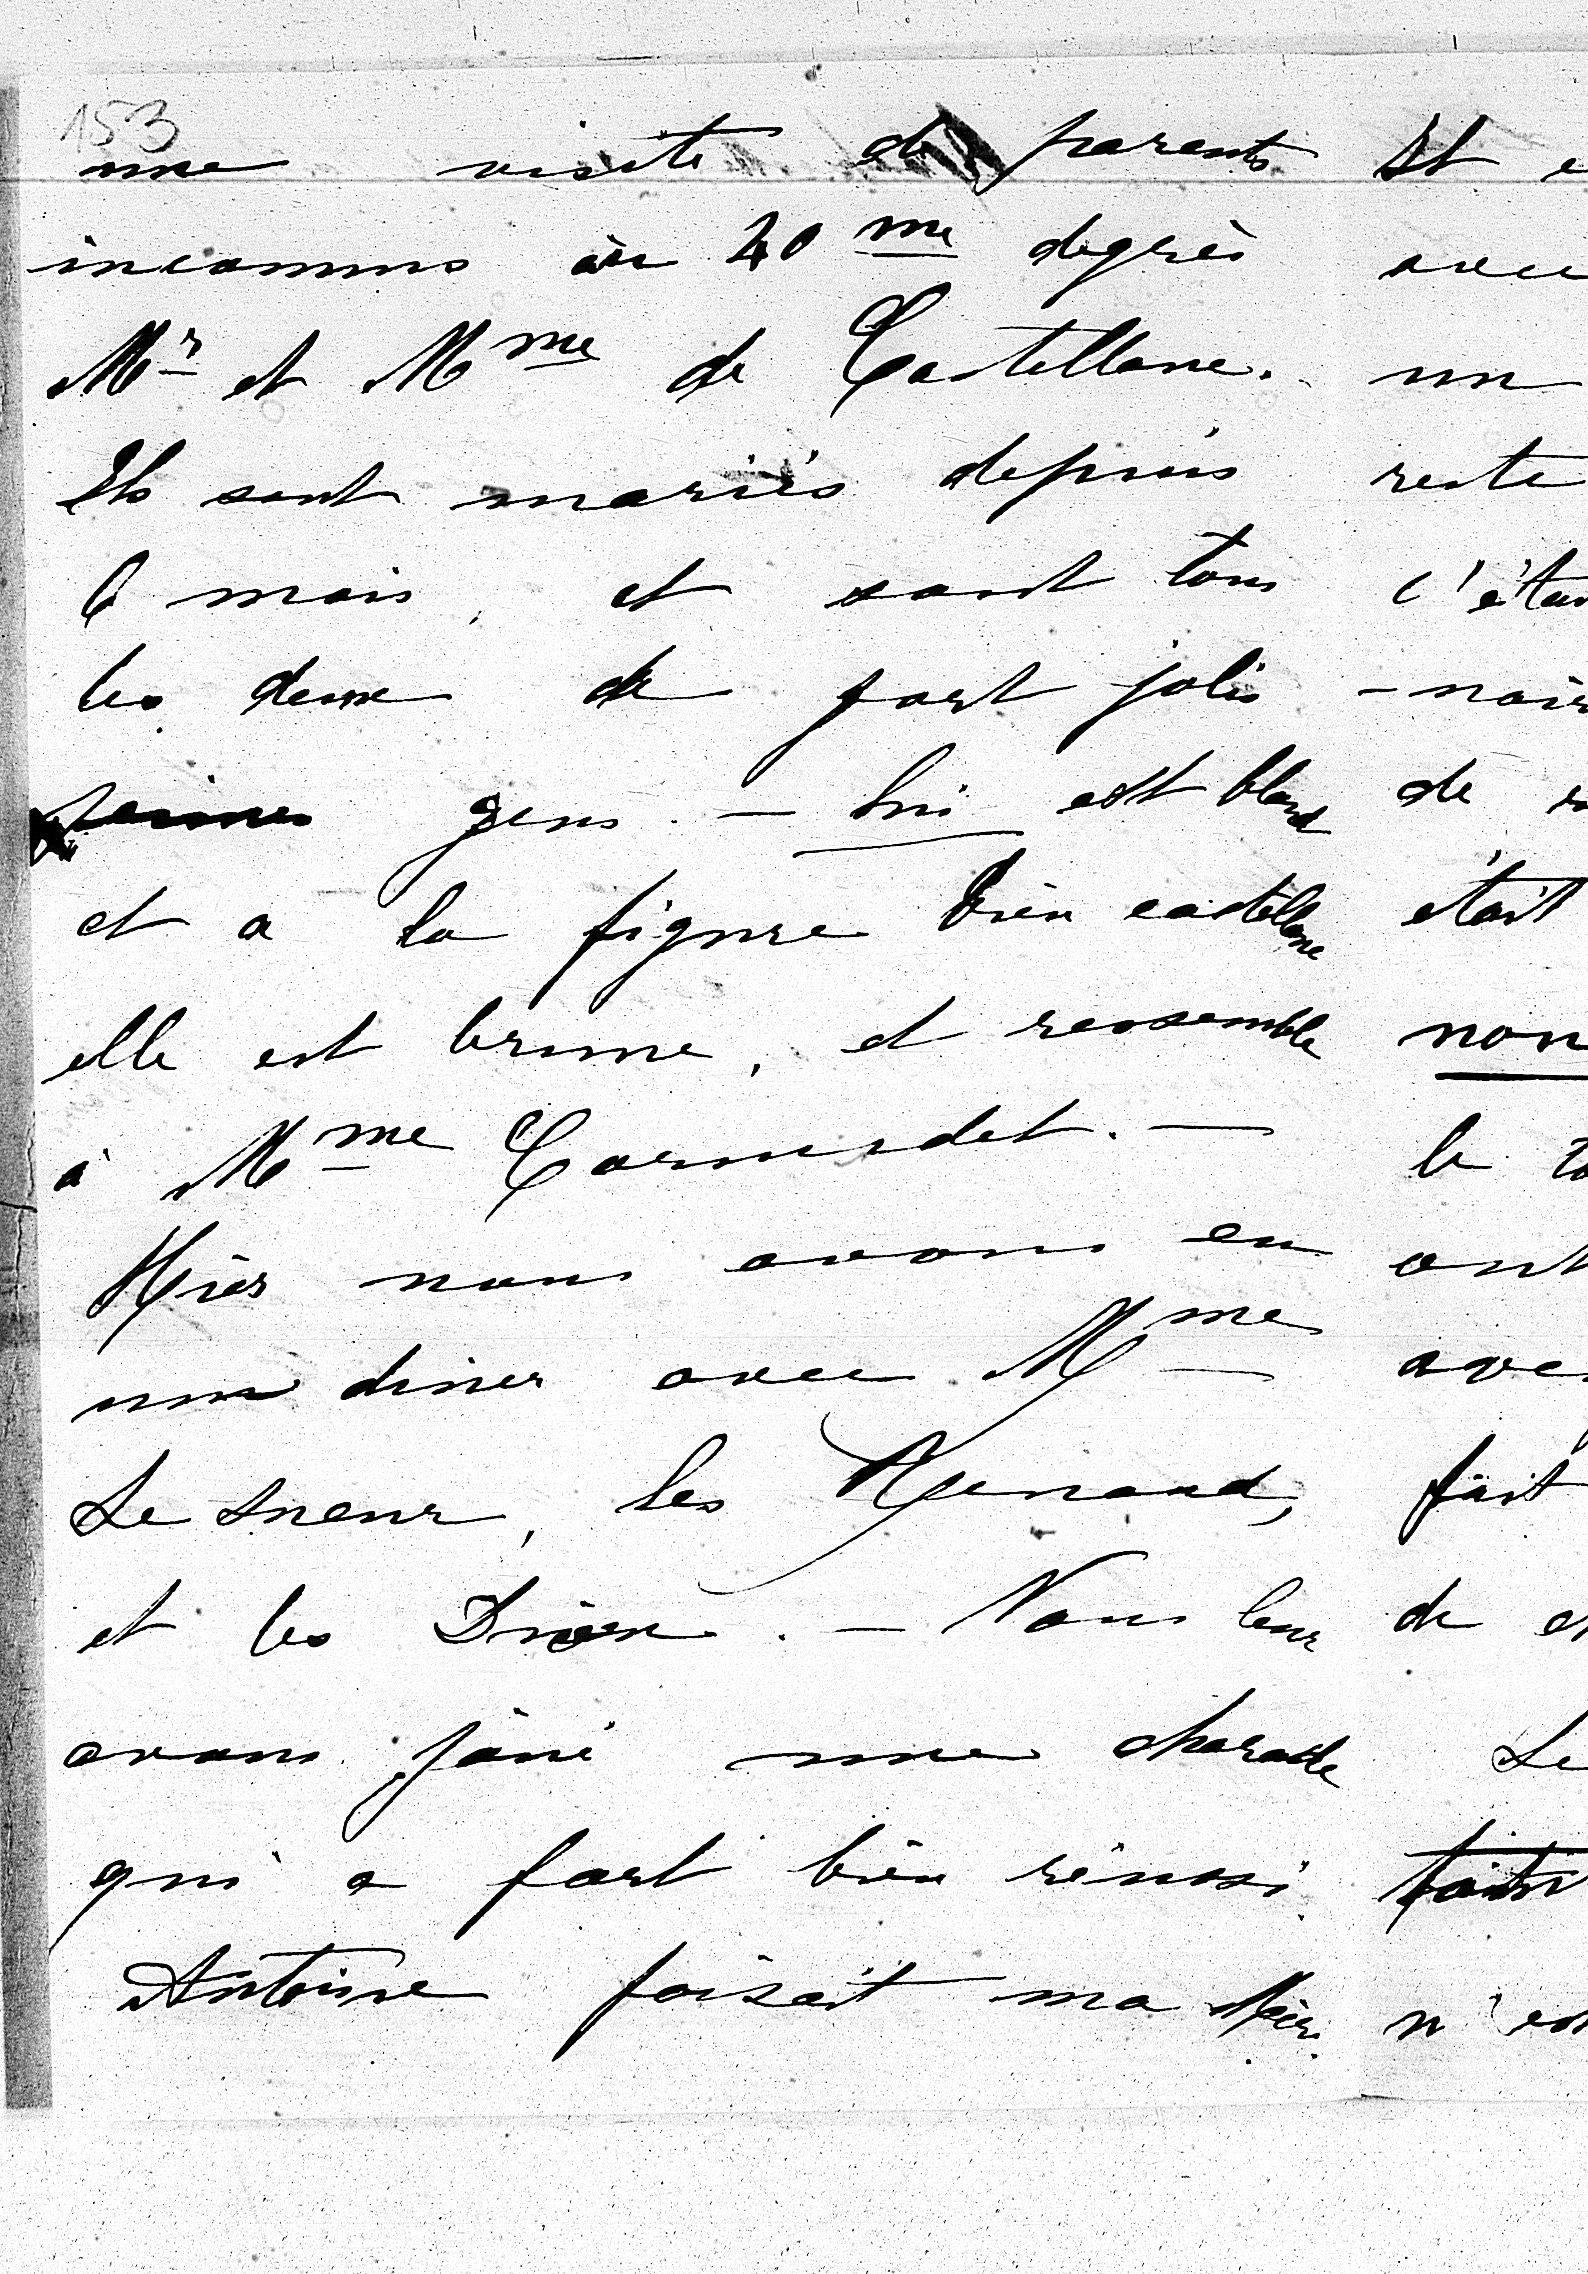 153
une visite de parents
inconnus au 40me degrès
Mr et Mme de Castellane.
Ils sont mariés depuis
6 mois, et sont tous
les deux de fort jolis
jeunes gens. — Lui est blond
et a la figure bien castellane
elle est brune, et ressemble
à Mme Cornudet. —
Hier nous avons eu
un diner avec Mme
Le Sueur, les Renaud,
et les . — Nous leur
avons joué une charade
qui a fort bien réussi
Antoine faisait ma Mère.
Et
avec
un
reste
c'était
-nair
de
était
non
le
ont
avec
fait
de
Le
n'